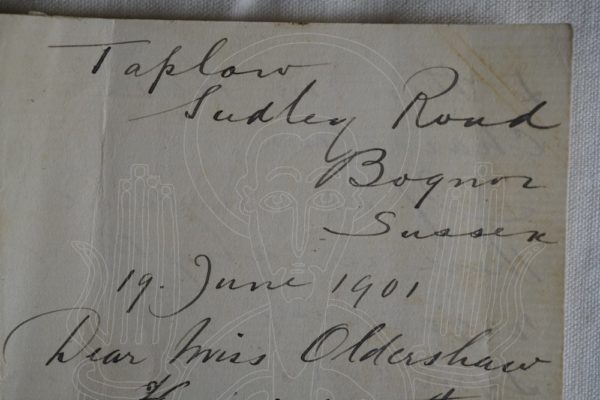 Taplow
Sudley Road
Bognor
Sussex
19. June 1901
Dear Miss Oldershaw